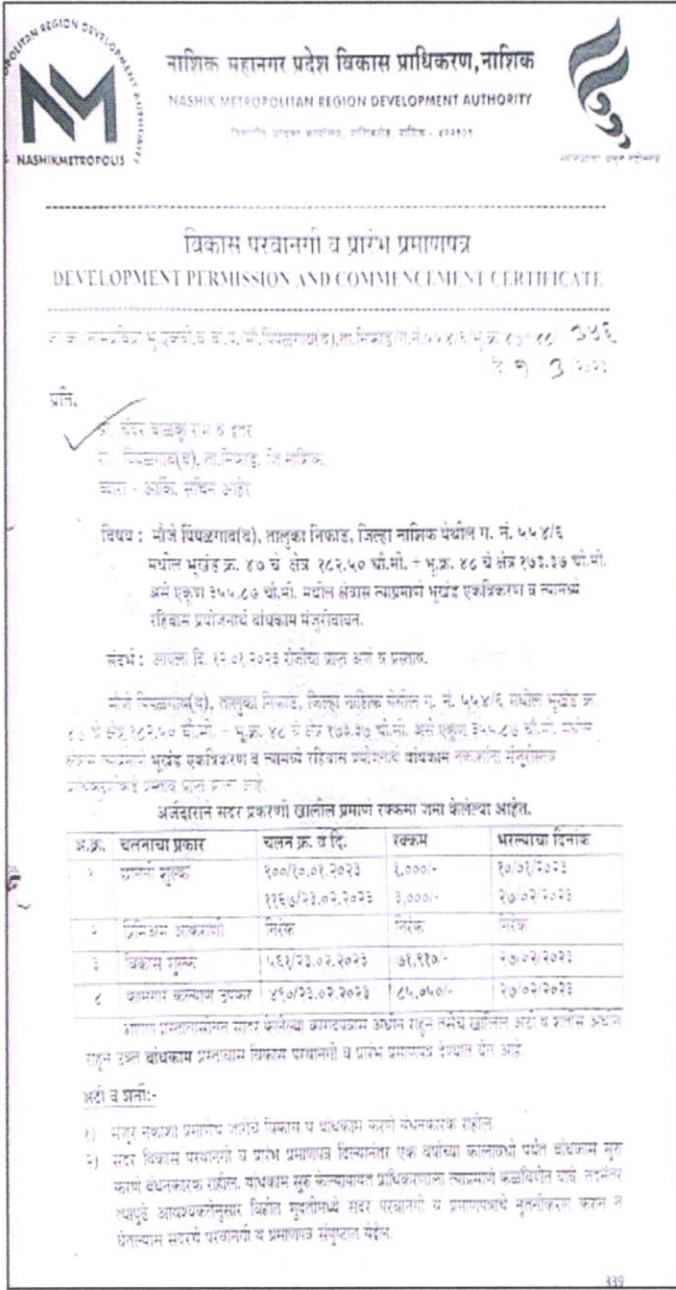 NASHIKMETROPOLIS
नाशिक महानगर प्रदेश विकास प्राधिकरण, नाशिक
NASHIK METROPOLITAN REGION DEVELOPMENT AUTHORITY
विकास परवानगी व प्रारंभ प्रमाणपत्र
DEVELOPMENT PERMISSION AND COMMENCEMENT CERTIFICATE
मौ.पिंपळगाव(ब),ता.निफाड/ग.नं.५५४/६/भू.क्र.४७+४८/ ३५६
दि. १ / ३ /२०२३
प्रति,
श्री. व इतर
रा. पिंपळगाव(ब), ता.निफाड, जि.नाशिक.
व्दारा - आर्कि. सचिन आहेर
विषय : मौजे पिंपळगाव(ब), तालुका निफाड, जिल्हा नाशिक येथील ग. नं. ५५४/६
मधील भूखंड क्र. ४७ चे क्षेत्र १८२.५० चौ.मी. + भू.क्र. ४८ चे क्षेत्र १७३.३७ चौ.मी.
असे एकूण ३५५.८७ चौ.मी. मधील क्षेत्रास त्याप्रमाणे भूखंड एकत्रिकरण व त्यामध्ये
रहिवास प्रयोजनार्थ बांधकाम मंजुरीबाबत.
संदर्भ : आपला दि. १२.०१.२०२३ रोजीचा प्राप्त अर्ज व प्रस्ताव.
मौजे पिंपळगाव(ब), तालुका निफाड, जिल्हा नाशिक येथील ग. नं. ५५४/६ मधील भूखंड क्र.
४७ चे क्षेत्र १८२.५० चौ.मी. + भू.क्र. ४८ चे क्षेत्र १७३.३७ चौ.मी. असे एकूण ३५५.८७ चौ.मी. मधील
क्षेत्रास त्याप्रमाणे भूखंड एकत्रिकरण व त्यामध्ये रहिवास प्रयोजनार्थ बांधकाम नकाशांना मंजुरीस्तव
प्रस्ताव प्राप्त झाला आहे.
अर्जदाराने सदर प्रकरणी खालील प्रमाणे रक्कमा जमा केलेल्या आहेत.
अ.क्र. चलनाचा प्रकार चलन क्र. व दि. रक्कम भरल्याचा दिनांक
१ छाननी शुल्क १००/१०.०१.२०२३ १,०००/- १०/०१/२०२३
११६७/२३.०२.२०२३ ३,०००/- २७/०२/२०२३
२ प्रिमिअम आकारणी निरंक निरंक निरंक
३ विकास शुल्क ५६१/२३.०२.२०२३ ७१,९१०/- २७/०२/२०२३
४ कामगार कल्याण उपकर ४९०/२३.०२.२०२३ ८५,०५०/- २७/०२/२०२३
आपण प्रस्तावासोबत सादर केलेल्या कागदपत्रास अधीन राहून तसेच खालिल अटी व शर्तीस अधीन
राहून उक्त बांधकाम प्रस्तावास विकास परवानगी व प्रारंभ प्रमाणपत्र देण्यात येत आहे.
अटी व शर्ती:-
१) मंजूर नकाशा प्रमाणेच जागेचे विकास व बांधकाम करणे बंधनकारक राहील.
२) सदर विकास परवानगी व प्रारंभ प्रमाणपत्र दिल्यानंतर एक वर्षाच्या कालावधी पर्यंत बांधकाम सुरु
करणे बंधनकारक राहील. बांधकाम सुरु केल्याबाबत प्राधिकरणाला त्याप्रमाणे कळविणेत यावे. तदनंतर
त्यापुढे आवश्यकतेनुसार विहीत मुदतीमध्ये सदर परवानगी व प्रमाणपत्राचे नुतनीकरण करुन न
घेतल्यास सदरचे परवानगी व प्रमाणपत्र संपुष्टात येईल.
339